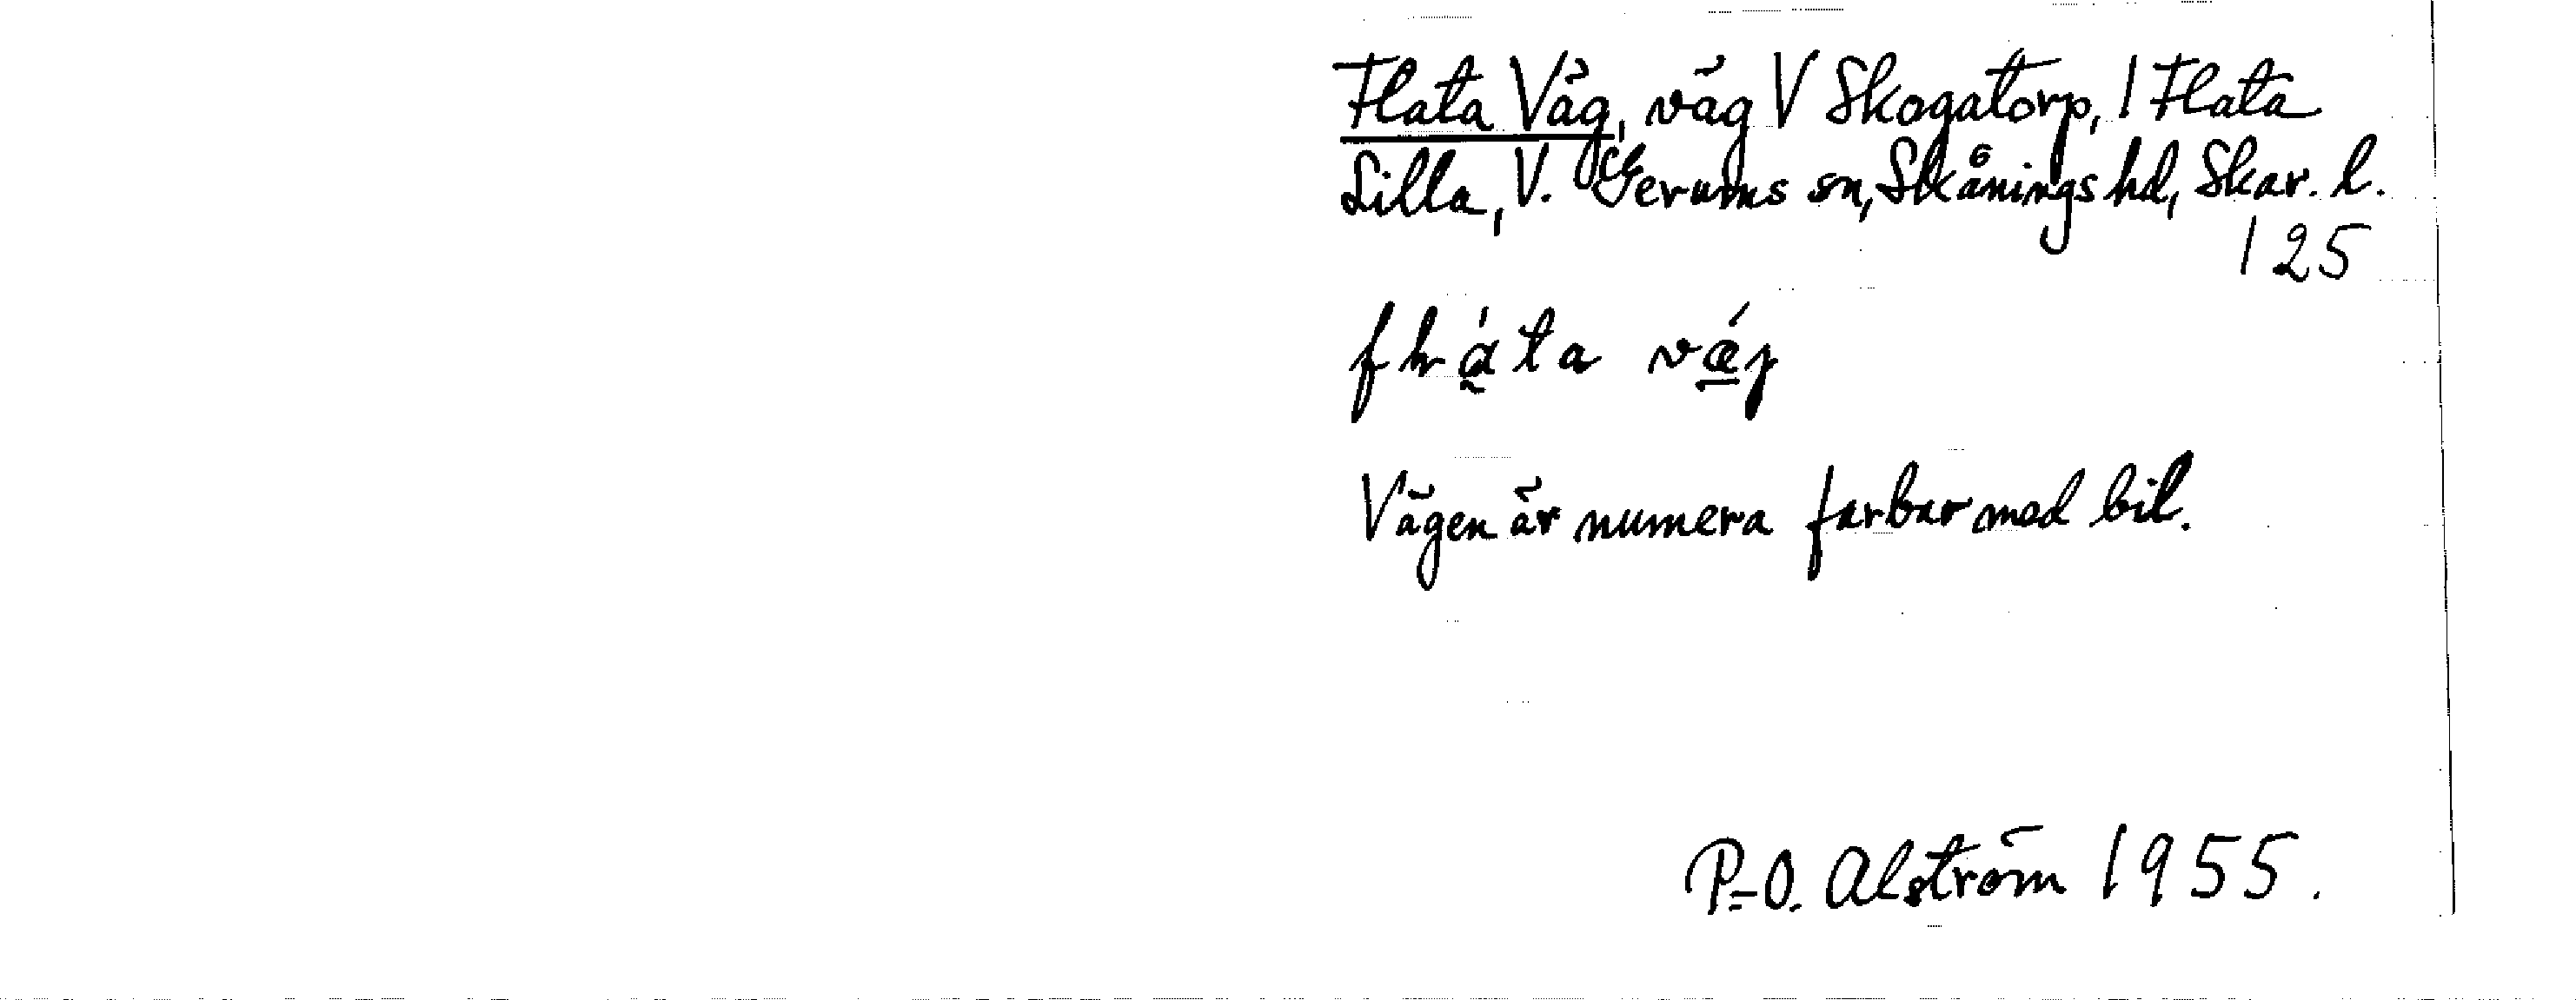 Flata Väg, väg V Skogatorp, 1 Flata
Lilla, V. Gerums sn, Skånings hd, Skar. l.
125
väj
Vägen är numera farbar med bil.
P.-O. Alström 1955.